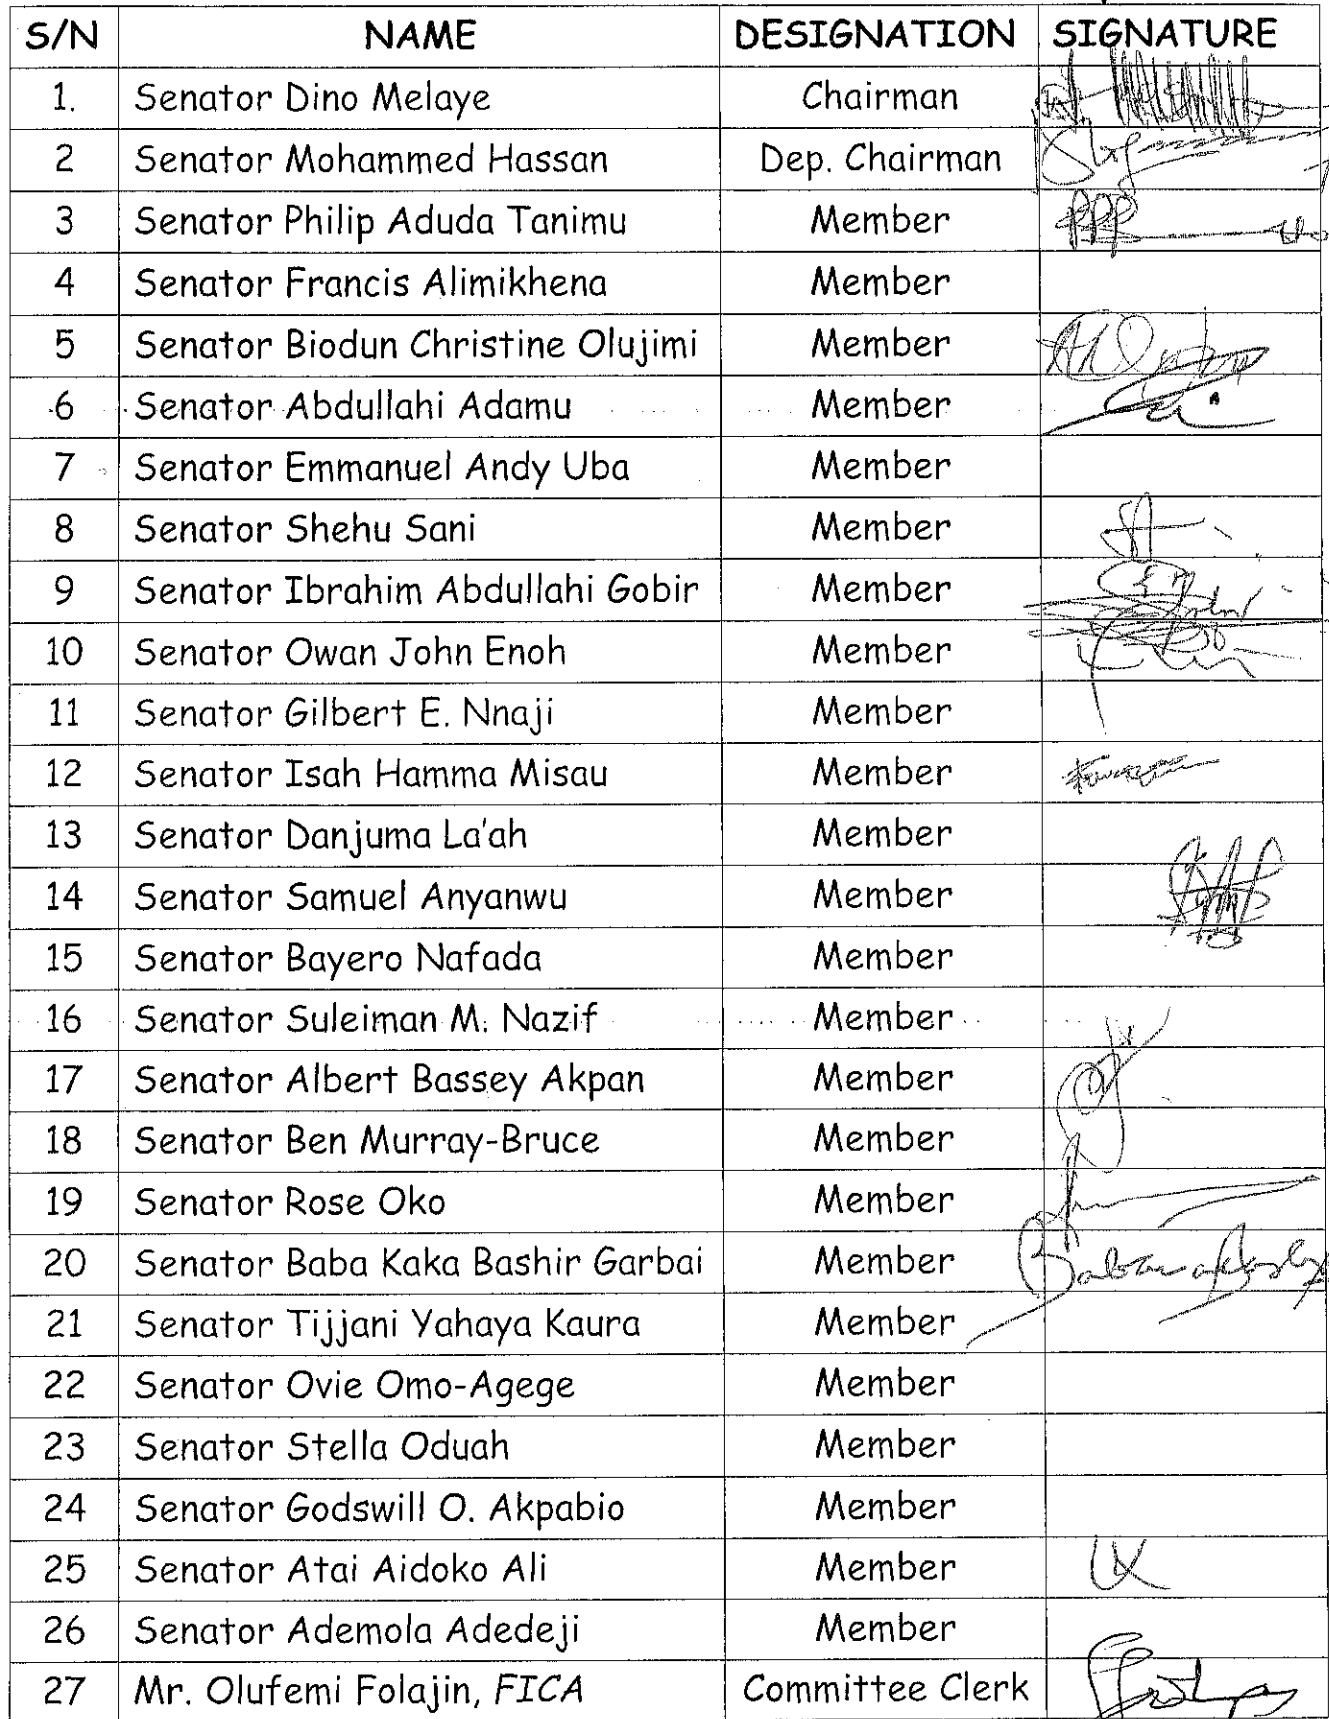 S/N NAME DESIGNATION SIGNATURE
1. Senator Dino Melaye Chairman
2 Senator Mohammed Hassan Dep. Chairman
3 Senator Philip Aduda Tanimu Member
4 Senator Francis Alimikhena Member
5 Senator Biodun Christine Olujimi Member
6 Senator Abdullahi Adamu Member
7 Senator Emmanuel Andy Uba Member
8 Senator Shehu Sani Member
9 Senator Ibrahim Abdullahi Gobir Member
10 Senator Owan John Enoh Member
11 Senator Gilbert E. Nnaji Member
12 Senator Isah Hamma Misau Member
13 Senator Danjuma La'ah Member
14 Senator Samuel Anyanwu Member
15 Senator Bayero Nafada Member
16 Senator Suleiman M. Nazif Member
17 Senator Albert Bassey Akpan Member
18 Senator Ben Murray-Bruce Member
19 Senator Rose Oko Member
20 Senator Baba Kaka Bashir Garbai Member
21 Senator Tijjani Yahaya Kaura Member
22 Senator Ovie Omo-Agege Member
23 Senator Stella Oduah Member
24 Senator Godswill O. Akpabio Member
25 Senator Atai Aidoko Ali Member
26 Senator Ademola Adedeji Member
27 Mr. Olufemi Folajin, FICA Committee Clerk